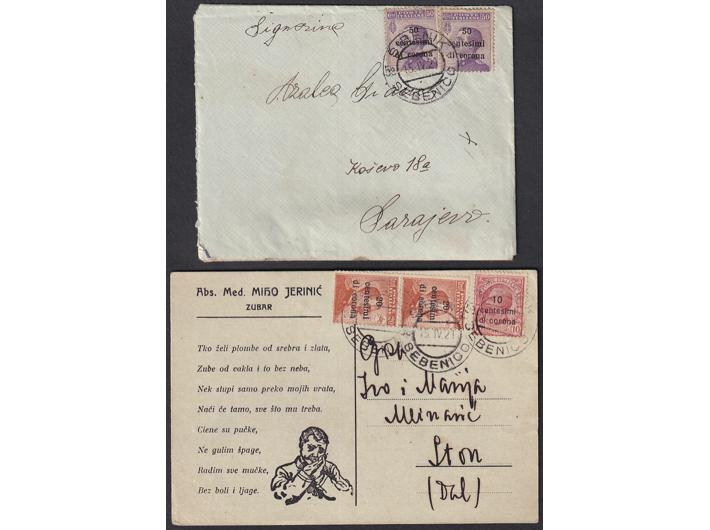 Signorina
50 centesimi di corona
50 centesimi di corona
SEBENICO
Azalea
Koševo 18a
Sarajevo
Abs. Med. MIHO JERINIĆ
ZUBAR
Tko želi plombe od srebra i zlata,
Zube od cakla i to bez neba,
Nek stupi samo preko mojih vrata,
Naći će tamo, sve što mu treba.
Ciene su pučke,
Ne gulim špage,
Radim sve mučke,
Bez boli i ljage.
20 centesimi di corona
20 centesimi di corona
10 centesimi di corona
15 IV 21
SEBENICO
Ivo i Marija
Mlinarić
Ston
(Dal)